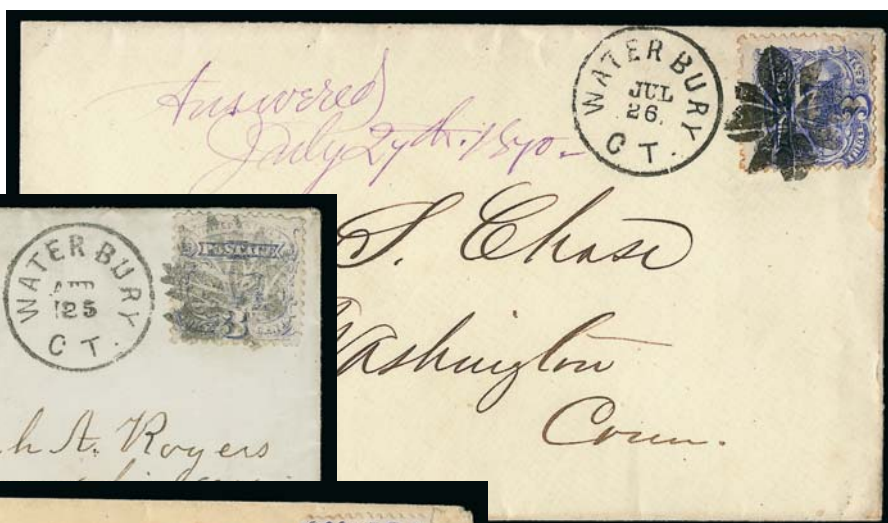 Answered
July 27th. 1870.
WATERBURY
JUL
26.
CT.
S. Chase
Washington
Conn.
WATERBURY
APR
25
CT.
POSTAGE
3
h A. Rogers